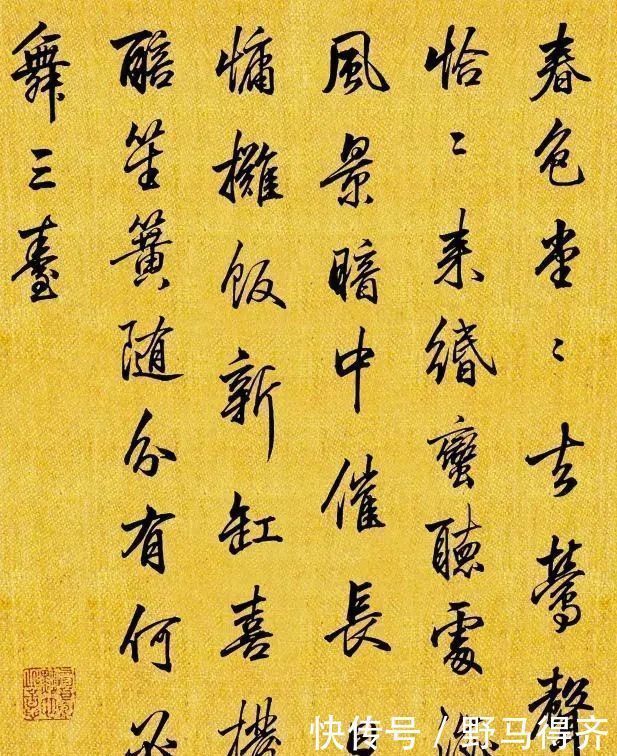 春色堂〻去鶯聲
恰〻来緡蠻聽處
風景暗中催長
慵攤飯新缸喜撥
醅笙簧随分有何必
舞三臺
快传号 / 野马得齐